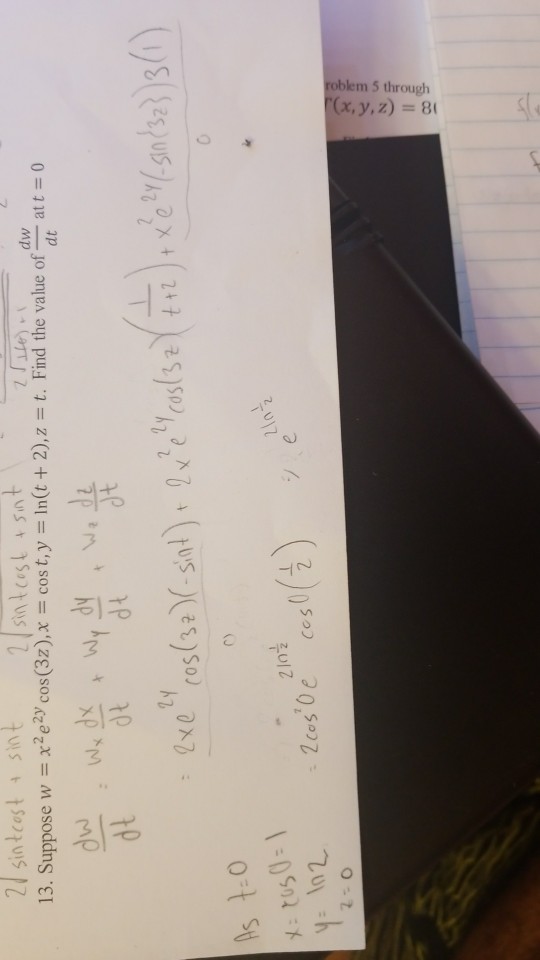 2√sintcost + sint 2√sintcost + sint 2√
13. Suppose w = x²e²ʸ cos(3z), x = cos t, y = ln(t + 2), z = t. Find the value of dw/dt at t = 0
dw/dt = Wx dx/dt + Wy dy/dt + Wz dz/dt
= 2xe²ʸ cos(3z)(-sint) + 2x²e²ʸ cos(3z)(1/t+2) + x²e²ʸ(-sin(3z))3(1)
0 0
As t=0
x= cos0=1
y= ln2
z=0
= 2cos²0e^2ln½ cos0(½) e^2ln½
roblem 5 through
(x, y, z) = 8